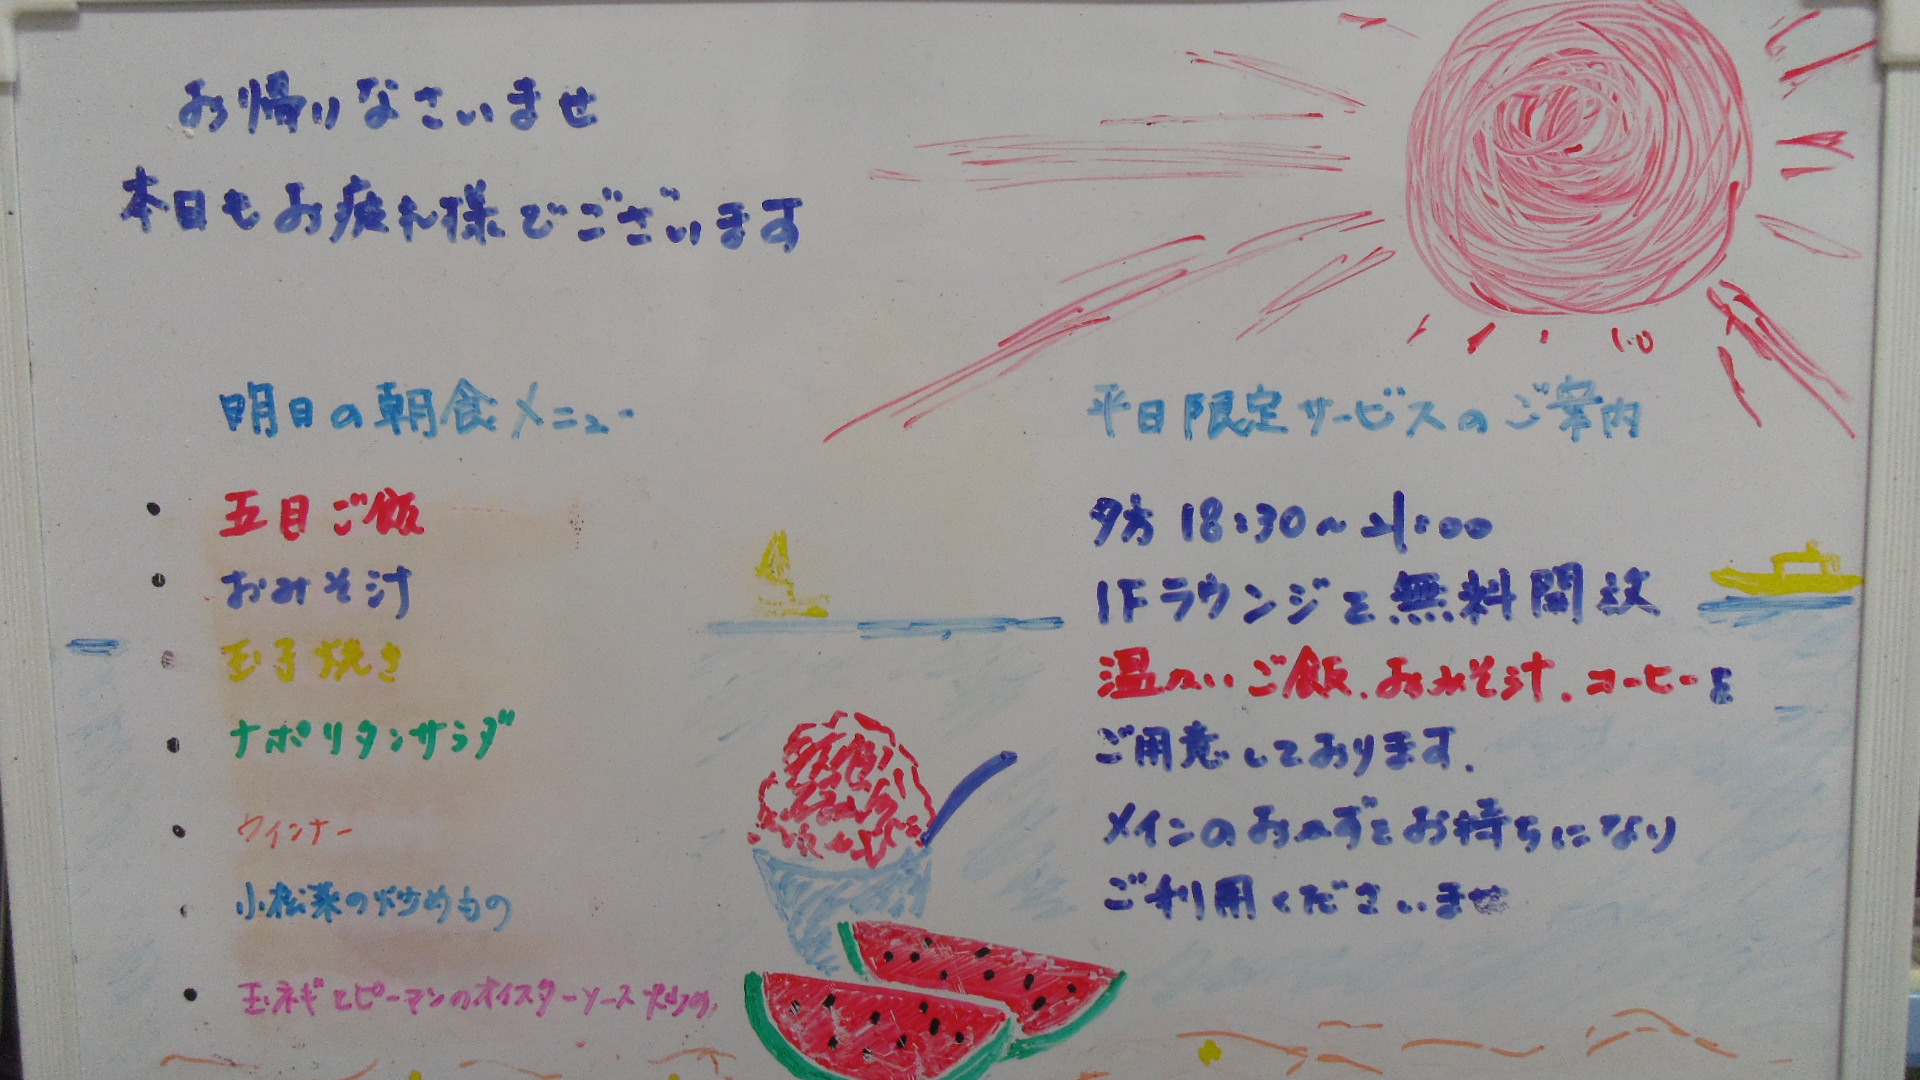 お帰りなさいませ
本日もお疲れ様でございます
明日の朝食メニュー
・五目ご飯
・おみそ汁
・玉子焼き
・ナポリタンサラダ
・ウインナー
・小松菜の炒めもの
・玉ネギとピーマンのオイスターソース炒め
平日限定サービスのご案内
夕方 18:30～21:00
1Fラウンジを無料開放
温かいご飯、おみそ汁、コーヒーを
ご用意しております。
メインのおかずをお持ちになり
ご利用くださいませ